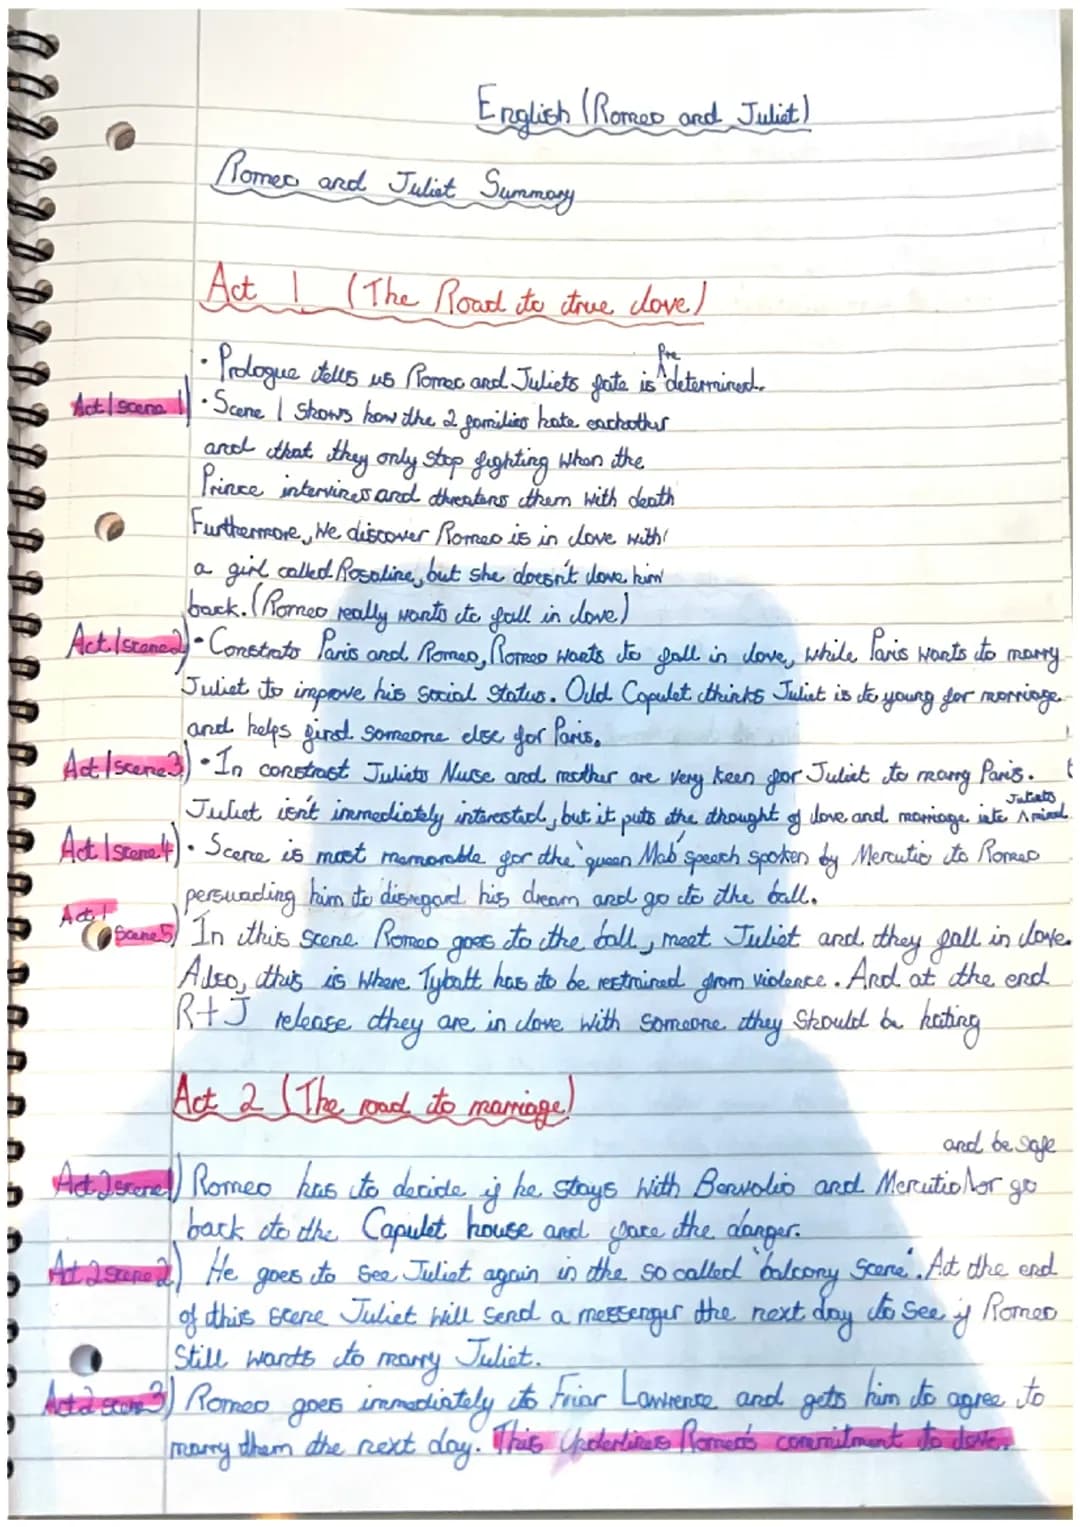 English (Romeo and Juliet)
Romeo and Juliet Summary
Act 1 (The Road to true love)
• Prologue tells us Romeo and Juliets fate is predetermined.
Act 1 scene 1) • Scene 1 shows how the 2 families hate eachother
and that they only stop fighting when the
Prince intervines and threatens them with death
Furthermore, we discover Romeo is in love with
a girl called Rosaline, but she doesn't love him
back. (Romeo really wants to fall in love)
Act 1 scene 2) • Constrats Paris and Romeo, Romeo wants to fall in love, while Paris wants to marry
Juliet to improve his social status. Old Capulet thinks Juliet is to young for marriage
and helps find someone else for Paris.
Act 1 scene 3) • In constrast Juliets Nurse and mother are very keen for Juliet to marry Paris.
Juliet isn't immediately interested, but it puts the thought of love and marriage into Juliets mind.
Act 1 scene 4) • Scene is most memorable for the 'queen Mab' speech spoken by Mercutio to Romeo
persuading him to disregard his dream and go to the ball.
Act 1 scene 5) In this scene Romeo goes to the ball, meet Juliet and they fall in love.
Also, this is where Tybalt has to be restrained from violence. And at the end
R+J release they are in love with someone they should be hating
Act 2 (The road to marriage)
Act 2 scene 1) Romeo has to decide if he stays with Benvolio and Mercutio and be safe or go
back to the Capulet house and face the danger.
Act 2 scene 2) He goes to see Juliet again in the so called 'balcony scene'. At the end
of this scene Juliet will send a messenger the next day to see if Romeo
still wants to marry Juliet.
Act 2 scene 3) Romeo goes immediately to Friar Lawrence and gets him to agree to
marry them the next day. This Underlines Romeo's commitment to love.